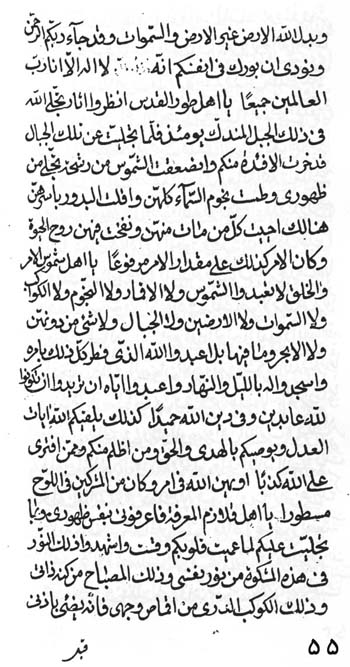 وبدل الله الارض غير الارض والسموات وقد جآء ربكم الرحمن
ونودى ان بورك فى انفسكم انه لا اله الا انا رب
العالمين جميعا يا اهل طور القدس انظروا اثار تجلى الله
فى ذلك الجبل المندك يومئذ فلما تجليت عن تلك الجبال
قد خرت الافئدة منكم وانصعقت الشموس من رشحة تجلى من
ظهورى وطمست نجوم السمآء كلهن وافلت البدور باسرهن
هنالك احييت كل من مات منهن ونفخت فيهن روح الحيوة
وكان الامر كذلك على مقدار الامر مرفوعا يا اهل شموس الامر
والخلق لا تعبدوا الشموس ولا الاقمار ولا النجوم ولا الكواكب
ولا السموات ولا الارضين ولا الجبال ولا شئ من دونهن
ولا الابحر وما فيها بل اعبدوا الله الذى فطر كل ذلك بامره
واسجدوا له بالليل والنهار واعبدوا اياه ان تريدوا ان تكونوا
لله عابدين وفى دين الله حميدا كذلك يلقيكم الله ايات
العدل ويوصيكم بالهدى والحق ومن اظلم منكم وممن افترى
على الله كذبا او يهن الله فى امر وكان من المشركين فى اللوح
مسطورا يا اهل قلازم المعرفة فاعرفونى بنفس ظهورى وبما
تجليت عليكم لما عميت قلوبكم وقت واشهدوا ذلك النور
فى هذه المشكوة من نور نفسى وذلك المصباح من كنه ذاتى
وذلك الكوكب الدرى من افحاص وجهى فانه يضئ باذنى
٥٥
قد